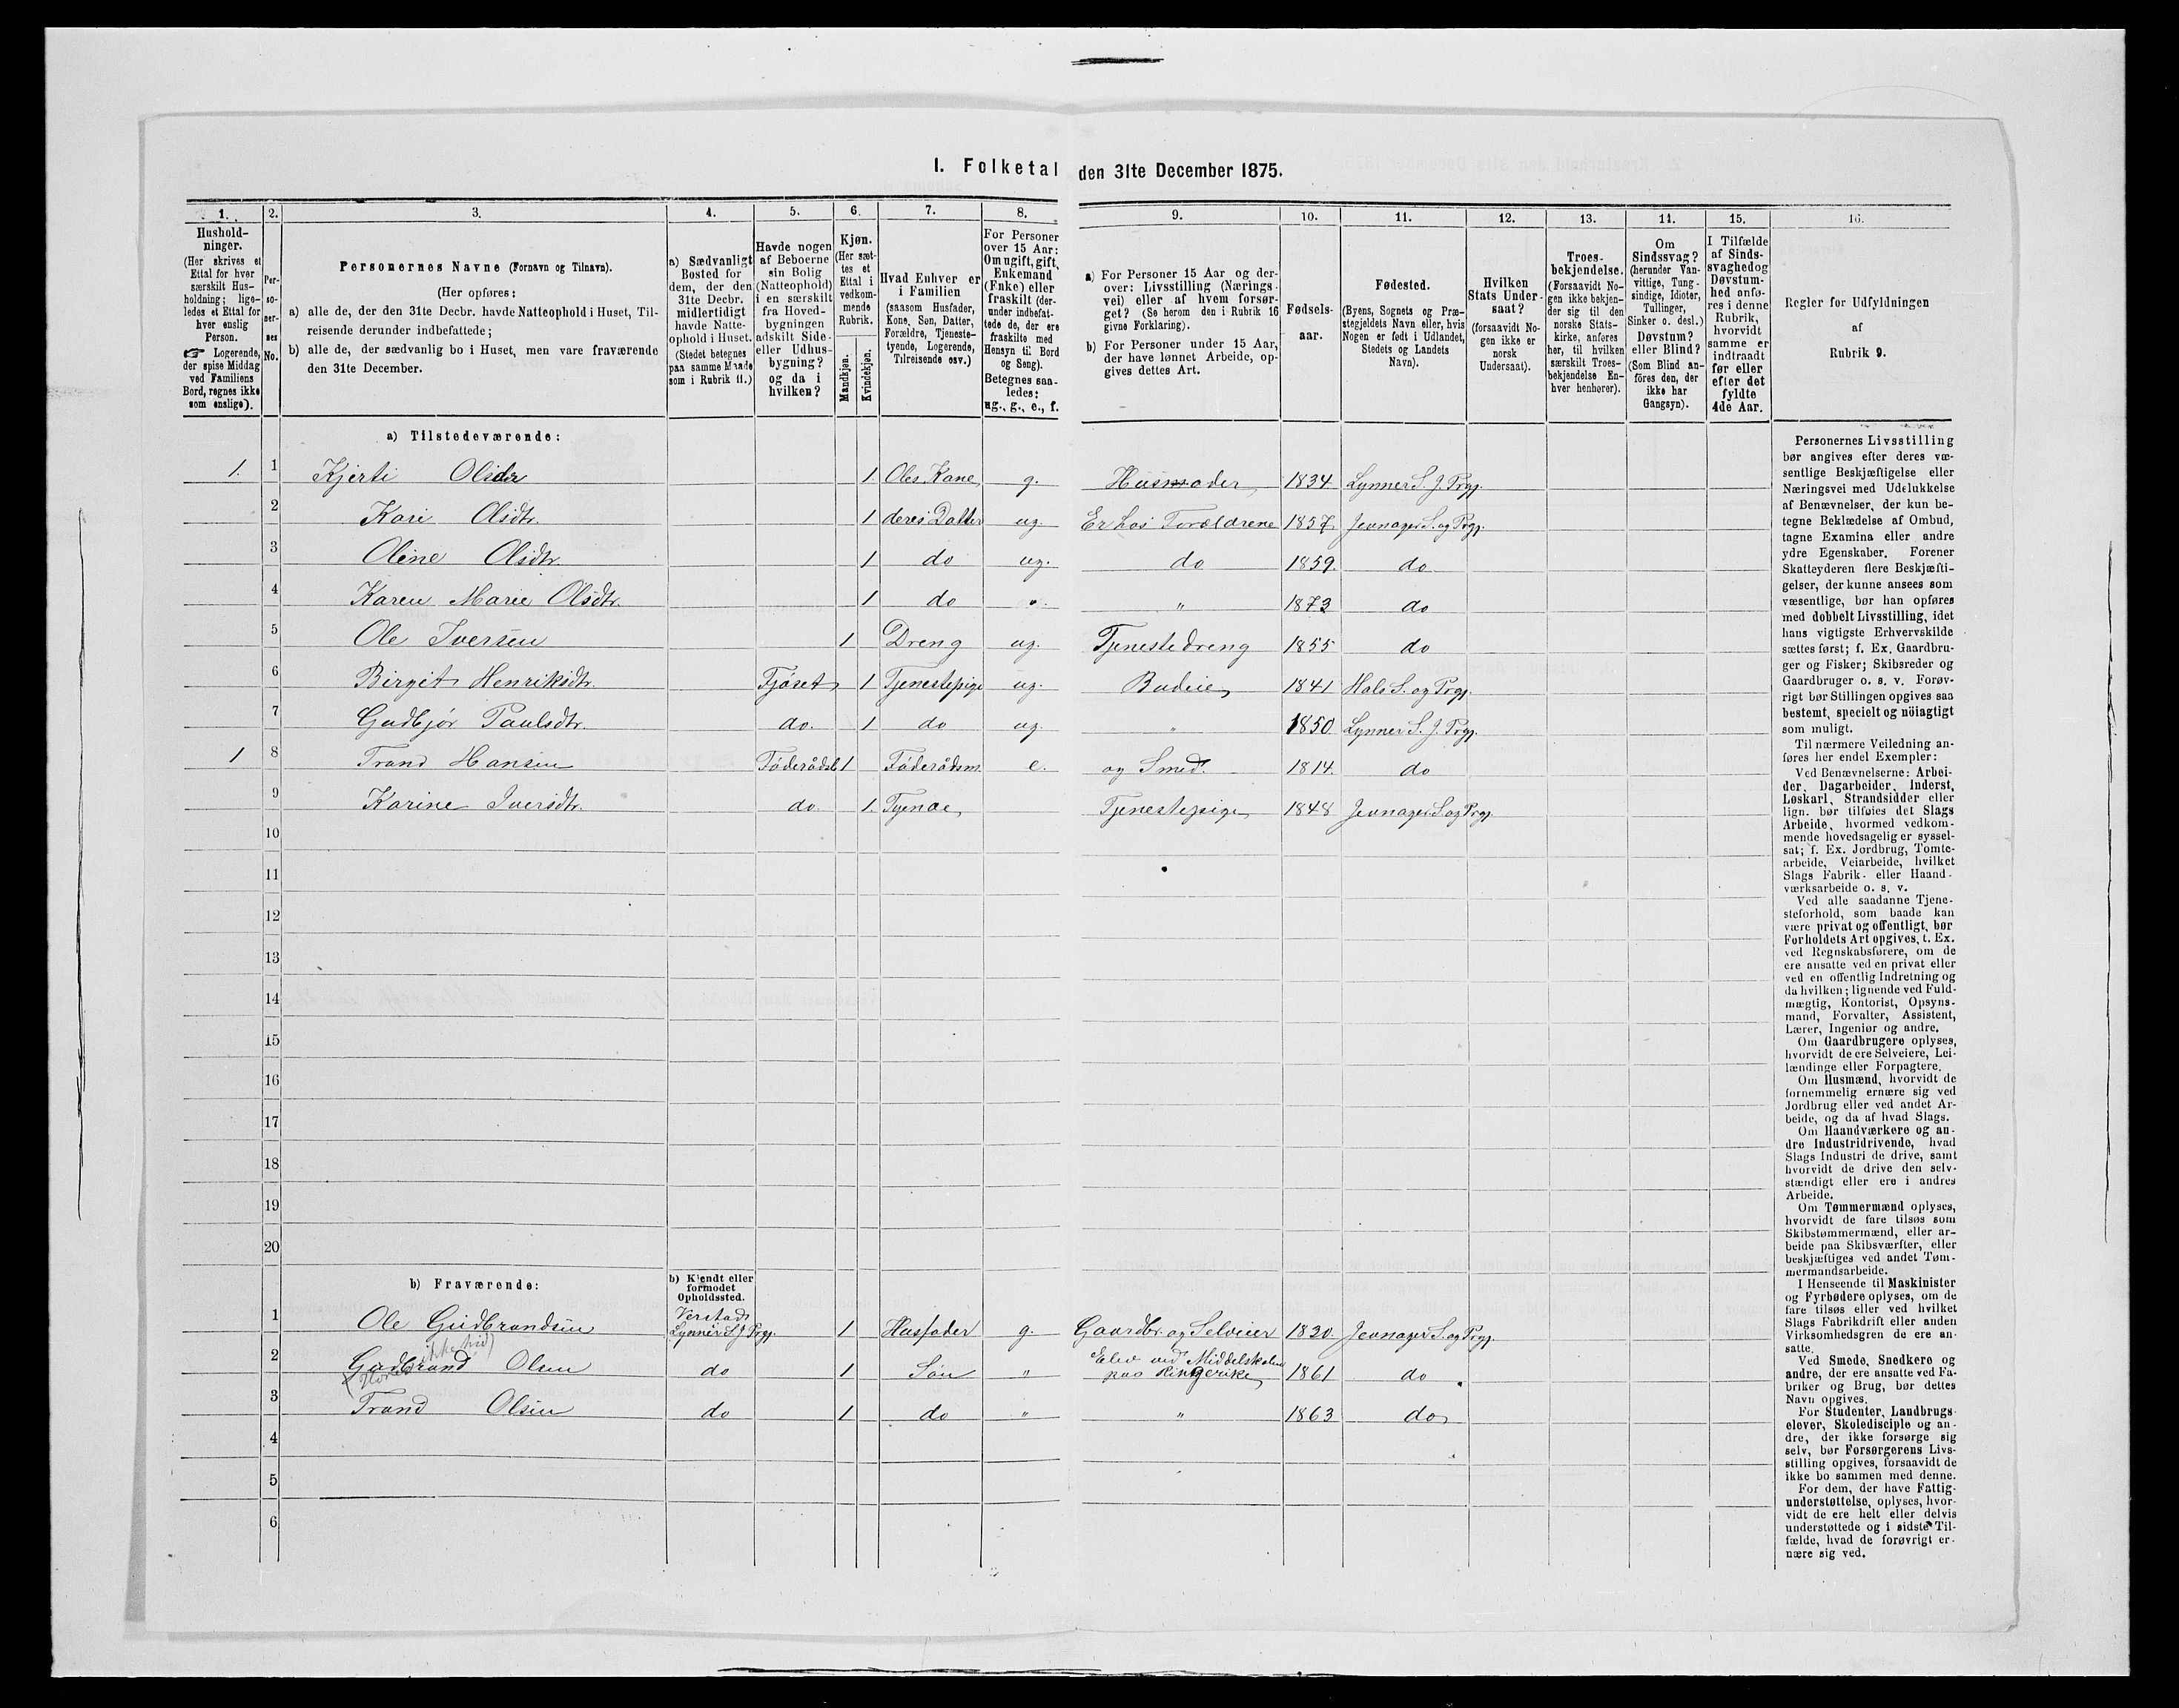 1. Folketal den 31te December 1875.
1. 2. 3. 4. 5. 6. 7. 8. 9. 10. 11. 12. 13. 14. 15. 16.
Hushold-
ninger.
(Her skrives et
Ettal for hver
særskilt Hus-
holdning; lige-
ledes et Ettal for
hver enslig
Person.
☞ Logerende,
der spise Middag
ved Familiens
Bord, regnes ikke
som enslige).
Per-
so-
ner-
nes
No.
Personernes Navne (Fornavn og Tilnavn).
(Her opføres:
a) alle de, der den 31te Decbr. havde Natteophold i Huset, Til-
reisende derunder indbefattede;
b) alle de, der sædvanlig bo i Huset, men vare fraværende
den 31te December.
a) Sædvanligt
Bosted for
dem, der den
31te Decbr.
midlertidigt
havde Natte-
ophold i Huset.
(Stedet betegnes
paa samme Maade
som i Rubrik 11.)
Havde nogen
af Beboerne
sin Bolig
(Natteophold)
i en særskilt
fra Hoved-
bygningen
adskilt Side-
eller Udhus-
bygning?
og da i
hvilken?
Kjøn.
(Her sæt-
tes et
Ettal i
vedkom-
mende
Rubrik.
Mandkjøn.
Kvindekjøn.
Hvad Enhver er
i Familien
(saasom Husfader,
Kone, Søn, Datter,
Forældre, Tjeneste-
tyende, Logerende,
Tilreisende osv.)
For Personer
over 15 Aar:
Om ugift, gift,
Enkemand
(Enke) eller
fraskilt (der-
under indbefat-
tede de, der ere
fraskilte med
Hensyn til Bord
og Seng).
Betegnes saa-
ledes:
ug., g., e., f.
a) For Personer 15 Aar og der-
over: Livsstilling (Nærings-
vei) eller af hvem forsør-
get? (Se herom den i Rubrik 16
givne Forklaring).
b) For Personer under 15 Aar,
der have lønnet Arbeide, op-
gives dettes Art.
Fødsels-
aar.
Fødested.
(Byens, Sognets og Præ-
stegjeldets Navn eller, hvis
Nogen er født i Udlandet,
Stedets og Landets
Navn).
Hvilken
Stats Under-
saat?
(forsaavidt No-
gen ikke er
norsk
Undersaat).
Troes-
bekjendelse.
(Forsaavidt No-
gen ikke bekjen-
der sig til den
norske Stats-
kirke, anføres
her, til hvilken
særskilt Troes-
bekjendelse En-
hver henhører).
Om
Sindssvag?
(herunder Van-
vittige, Tung-
sindige, Idioter,
Tullinger,
Sinker o. desl.)
Døvstum?
eller Blind?
(Som Blind an-
føres den, der
ikke har
Gangsyn).
I Tilfælde
af Sinds-
svaghed og
Døvstum-
hed anfø-
res i denne
Rubrik,
hvorvidt
samme er
indtraadt
før eller
efter det
fyldte
4de Aar.
Regler for Udfyldningen
af
Rubrik 9.
a) Tilstedeværende:
1. 1 Kjersti Olsdtr 1 Oles Kone g. Husmoder 1834 Lynner S. J. Prgj.
2 Kari Olsdtr. 1 deres Datter ug. Er hos Forældrene 1857 Jevnager S. og Prgj.
3 Oline Olsdtr. 1 do ug. do 1859. do
4 Karen Marie Olsdtr. 1 do " " 1873 do
5 Ole Iversen 1 Dreng ug. Tjenestedreng 1855 do
6 Birgit Henriksdtr. Fjøset 1 Tjenestepige ug. Budeie 1841 Hals S. og Prgj.
7 Gudbjør Paulsdtr. do. 1 do ug. " 1850 Lynner S. J. Prgj.
1 8 Trond Hansen Føderådsb 1 Føderådsm. e. og Smed. 1814. do
9 Karine Iversdtr. do. 1. Tyende Tjenestepige 1848 Jevnager S. og Prgj.
10
11
12
13
14
15
16
17
18
19
20
b) Fraværende:
b) Kjendt eller
formodet
Opholdssted.
1 Ole Gudbrandsen Lynner S. J. Prgj. 1 Husfader g. Gaardbr. og Selveier 1830. Jevnager S. og Prgj.
2 Gudbrand Olsen do 1 Søn " Elev ved Middelskolen
paa Ringerike 1861 do
3 Trond Olsen do 1 do " " 1863 do
4
5
6
Personernes Livsstilling
bør angives efter deres væ-
sentlige Beskjæftigelse eller
Næringsvei med Udelukkelse
af Benævnelser, der kun be-
tegne Beklædelse af Ombud,
tagne Examina eller andre
ydre Egenskaber. Forener
Skatteyderen flere Beskjæfti-
gelser, der kunne ansees som
væsentlige, bør han opføres
med dobbelt Livsstilling, idet
hans vigtigste Erhvervskilde
sættes først; f. Ex. Gaardbru-
ger og Fisker; Skibsreder og
Gaardbruger o. s. v. Forøv-
rigt bør Stillingen opgives saa
bestemt, specielt og nöiagtigt
som muligt.
Til nærmere Veiledning an-
føres her endel Exempler:
Ved Benævnelserne: Arbei-
der, Dagarbeider, Inderst,
Løskarl, Strandsidder eller
lign. bør tilføies det Slags
Arbeide, hvormed vedkom-
mende hovedsagelig er syssel-
sat; f. Ex. Jordbrug, Tomte-
arbeide, Veiarbeide, hvilket
Slags Fabrik- eller Haand-
værksarbeide o. s. v.
Ved alle saadanne Tjene-
steforhold, som baade kan
være privat og offentligt, bør
Forholdets Art opgives, t. Ex.
ved Regnskabsførere, om de
ere ansatte ved en privat eller
ved en offentlig Indretning og
da hvilken; lignende ved Fuld-
mægtig, Kontorist, Opsyns-
mand, Forvalter, Assistent,
Lærer, Ingeniør og andre.
Om Gaardbrugere oplyses,
hvorvidt de ere Selveiere, Lei-
lændinge eller Forpagtere.
Om Husmænd, hvorvidt de
fornemmelig ernære sig ved
Jordbrug eller ved andet Ar-
beide, og da af hvad Slags.
Om Haandværkere og an-
dre Industridrivende, hvad
Slags Industri de drive, samt
hvorvidt de drive den selv-
stændigt eller ere i andres
Arbeide.
Om Tømmermænd oplyses,
hvorvidt de fare tilsøs som
Skibstømmermænd, eller ar-
beide paa Skibsværfter, eller
beskjæftiges ved andet Tøm-
mermandsarbeide.
I Henseende til Maskinister
og Fyrbødere oplyses, om de
fare tilsøs eller ved hvilket
Slags Fabrikdrift eller anden
Virksomhedsgren de ere an-
satte.
Ved Smede, Snedkere og
andre, der ere ansatte ved Fa-
briker og Brug, bør dettes
Navn opgives.
For Studenter, Landbrugs-
elever, Skoledisciple og an-
dre, der ikke forsørge sig
selv, bør Forsørgerens Livs-
stilling opgives, forsaavidt de
ikke bo sammen med denne.
For dem, der have Fattig-
understøttelse, oplyses, hvor-
vidt de ere helt eller delvis
understøttede og i sidste Til-
fælde, hvad de forøvrigt er-
nære sig ved.